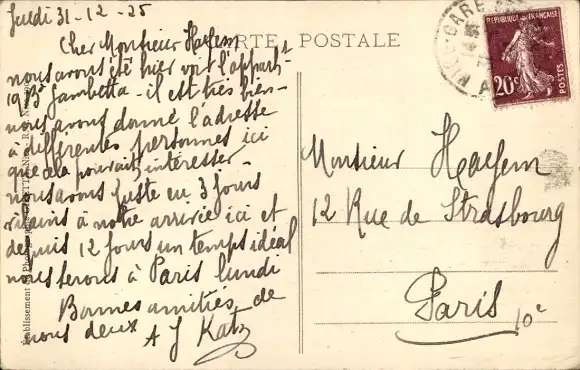 Jeudi 31-12-25
Cher Monsieur Hayem
nous avons été hier voir l'appart^t
19 B^d Gambetta - il est très bien -
nous avons donné l'adresse
à différentes personnes ici
que cela pourrait intéresser -
nous avons juste eu 3 jours
à notre arrivée ici et
depuis 12 jours un temps idéal
nous serons à Paris lundi
Bonnes amitiés de
nous deux
A J Katz
CARTE POSTALE
REPUBLIQUE FRANÇAISE
20c
POSTES
GARE
Monsieur Hayem
12 Rue de Strasbourg
Paris 10e